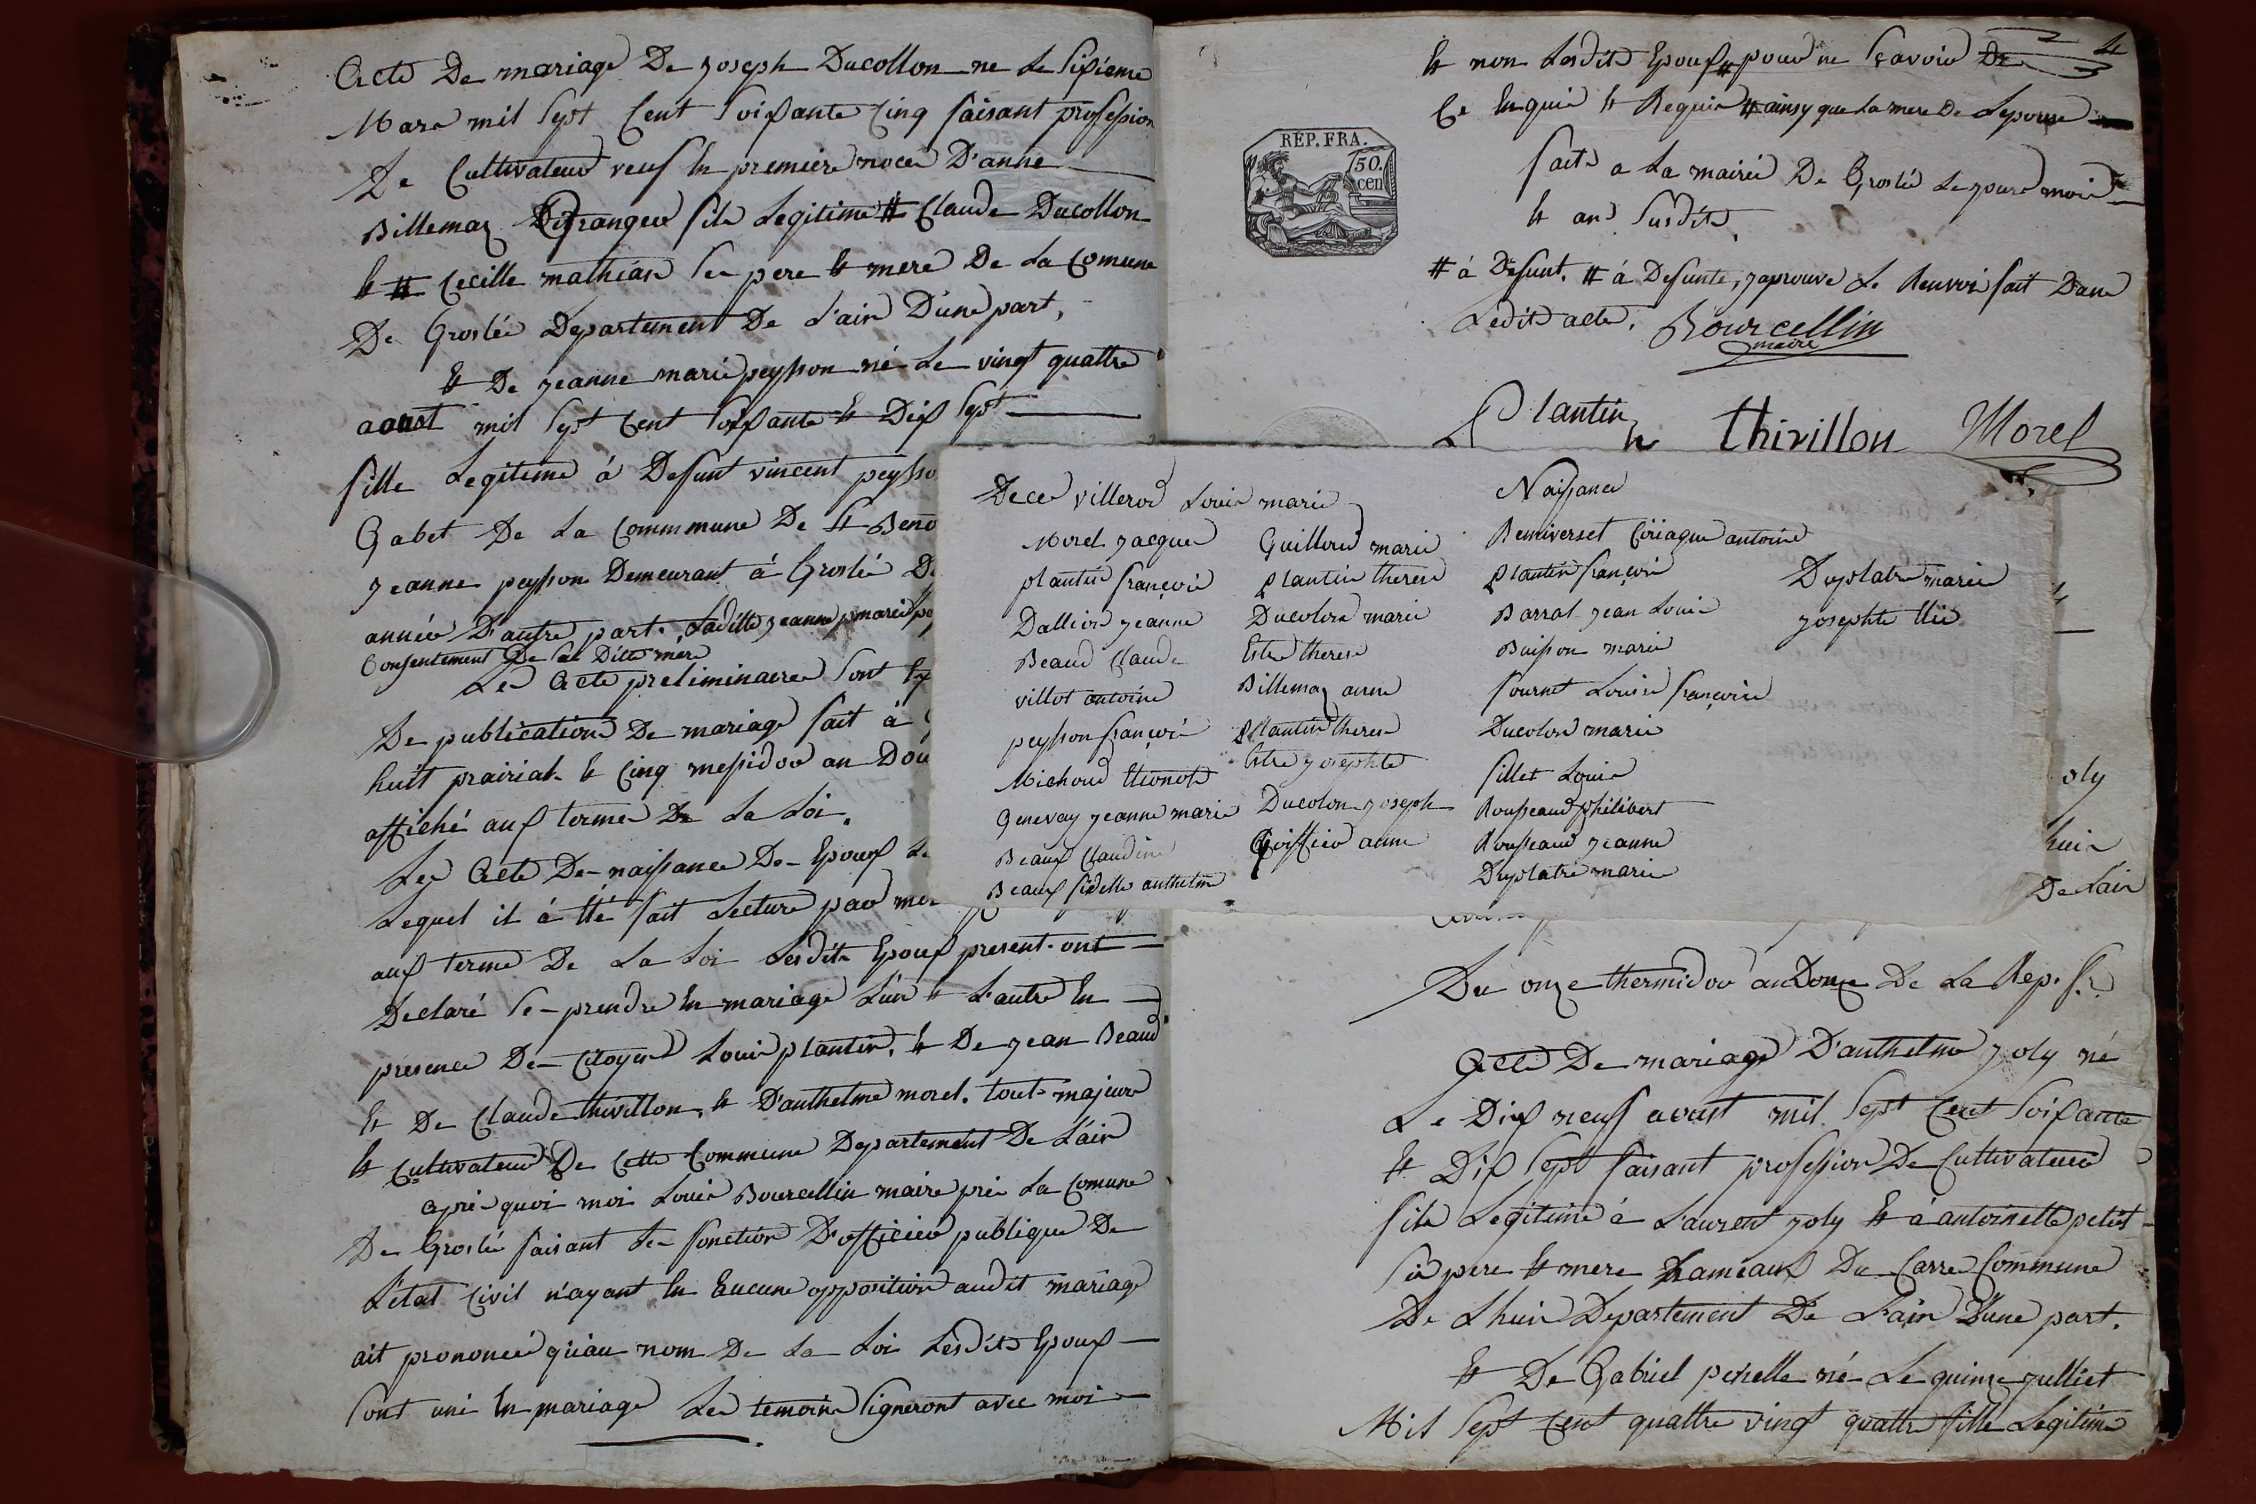 Acte De mariage De joseph Ducollon ne Le sixieme
Mars mil sept cent soixante cinq faisant profession
De Cultivateur veuf en premiere noces D'anne
Billemaz fils Legitime # Claude Ducollon
et # Cecille mathias ses pere et mere De La Comune
De Groslée Departement De L'ain D'une part,
et De jeanne marie peysson né Le vingt quattre
aoust mil sept cent soixante et Dix sept
fille Legitime à Defunt vincent peysso
Gabet De La Commmune De St Beno
jeanne peysson Demeurant à Groslée D
année D'autre part. Laditte jeanne marie pe
Consentement De sa Ditte mere
Les Acte preliminaires sont ex
De publications De mariage fait à
huit prairial et cinq messidor an Dou
affiché aux termes De La Loi.
Les Acte De naissance Des Epoux Le
Lequel il à été fait Lecture par moi
aux terme De La Loi Lesdits Epoux present ont
Declaré se prendre en mariage L'un et L'autre En
presence Des Citoyens Louis plantin, et De jean Beaud
et De Claude thivillon, et D'anthelme morel. tout majeurs
et Cultivateurs De Cette Commune Departement De L'ain
après quoi moi Louis Bourcellin maire près La Comune
De Groslée faisant Les fonction D'officier publique De
L'état Civil n'ayant eu Eucune opposition audit mariage
ait prononcée qu'au nom De La Loi Lesdits Epoux
sont uni en mariage Les temoins signeront avec moi
et non Lesdits Epoux # pour ne sçavoir De
Ce Enquis et Requis # ainsy que La mere De L'epouse
REP. FRA.
50.
cen
faits a La mairie De Groslée Le jours mois
et an susdits,
# à Defunt. # à Defunte, japrouve Le Renvoi fait Dans
Ledit acte. Bourcellin
maire
L Plantin thivillon Morel
Deces villerod Louis marie
Morel jacque
plantin françois
Dallier jeanne
Beaud Claude
villot antoine
peysson françois
Michoud
Genevay jeanne marie
Beaux Claudine
Beaux fidelle anthelme
Guillerd marie
plantin therese
Ducolon marie
Estre therese
Billemaz anne
plantin therese
Estre josephte
Ducolon joseph
Coiffier anne
Naissance
Remiverset Ciriaque antoine
plantin françois
Barral jean Louis
Buisson marie
fournet Louise françoise
Ducolon marie
fillet Louis
Rousseaud philibert
Rousseaud jeanne
Duplatre marie
Duplatre marie
josephte
oly
huis
De Lain
Du onze thermidor an Douze De La Rep. fr.
Acte De mariage D'anthelme joly né
Le Dix neuf avout mil sept cent soixante
et Dix sept faisant profession De Cultivateur
fils Legitime à Laurent joly et à antoinette petit
ses pere et mere hameaux Du Carre Commune
De Lhuis Departement De L'ain D'une part.
et De Gabriel penelle né Le quinze julliet
Mil sept cent quattre vingt quattre fille Legitime